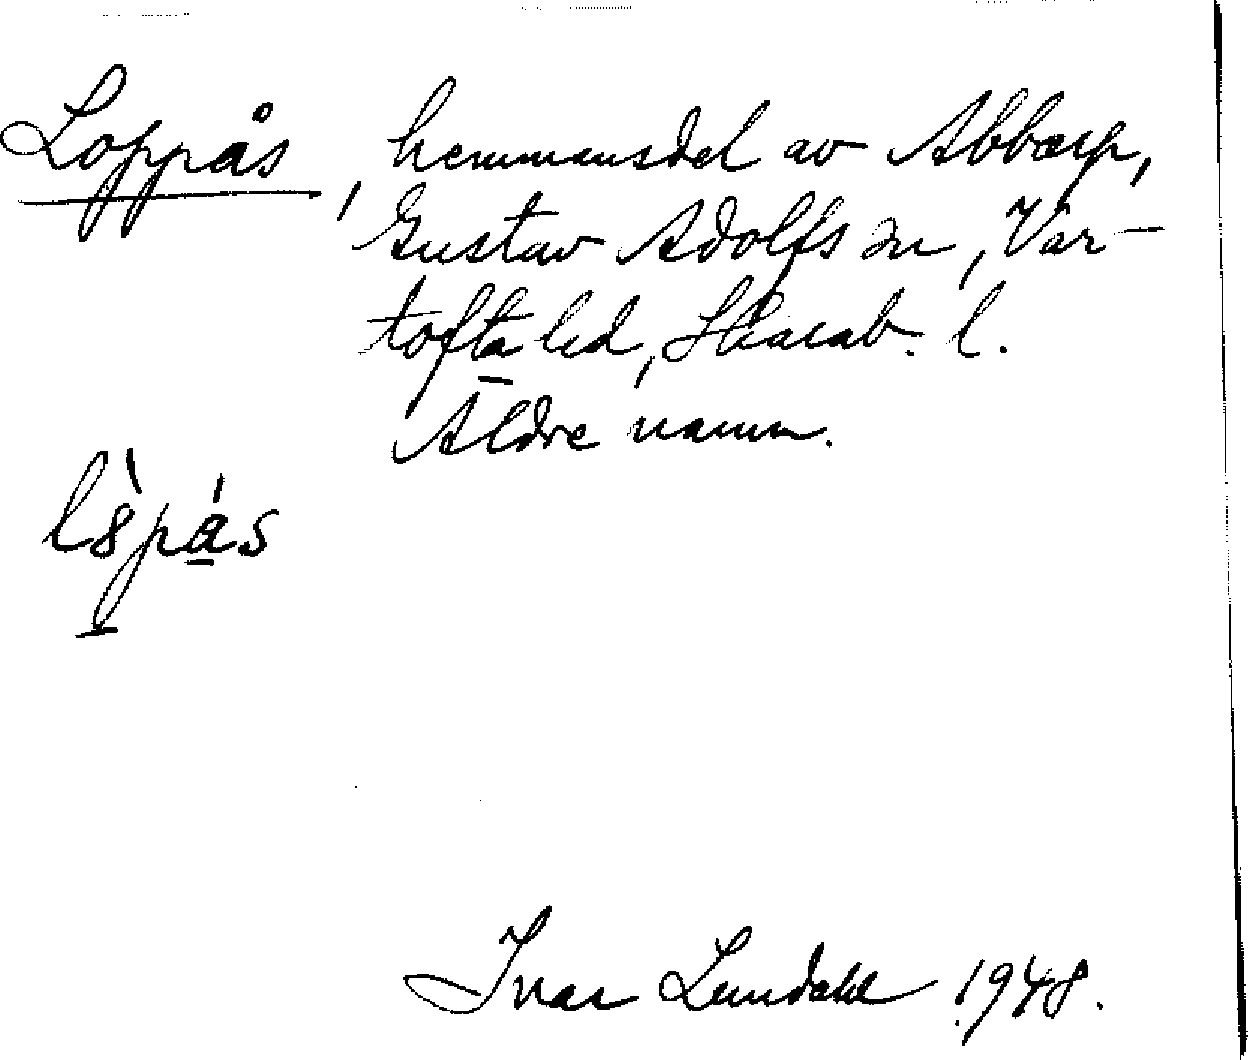 Loppås, hemmansdel av Abbarp,
Gustav Adolfs sn, Var-
tofta hd, Skarab. l.
Äldre namn.
l8̀pás
Ivar Lundahl 1948.